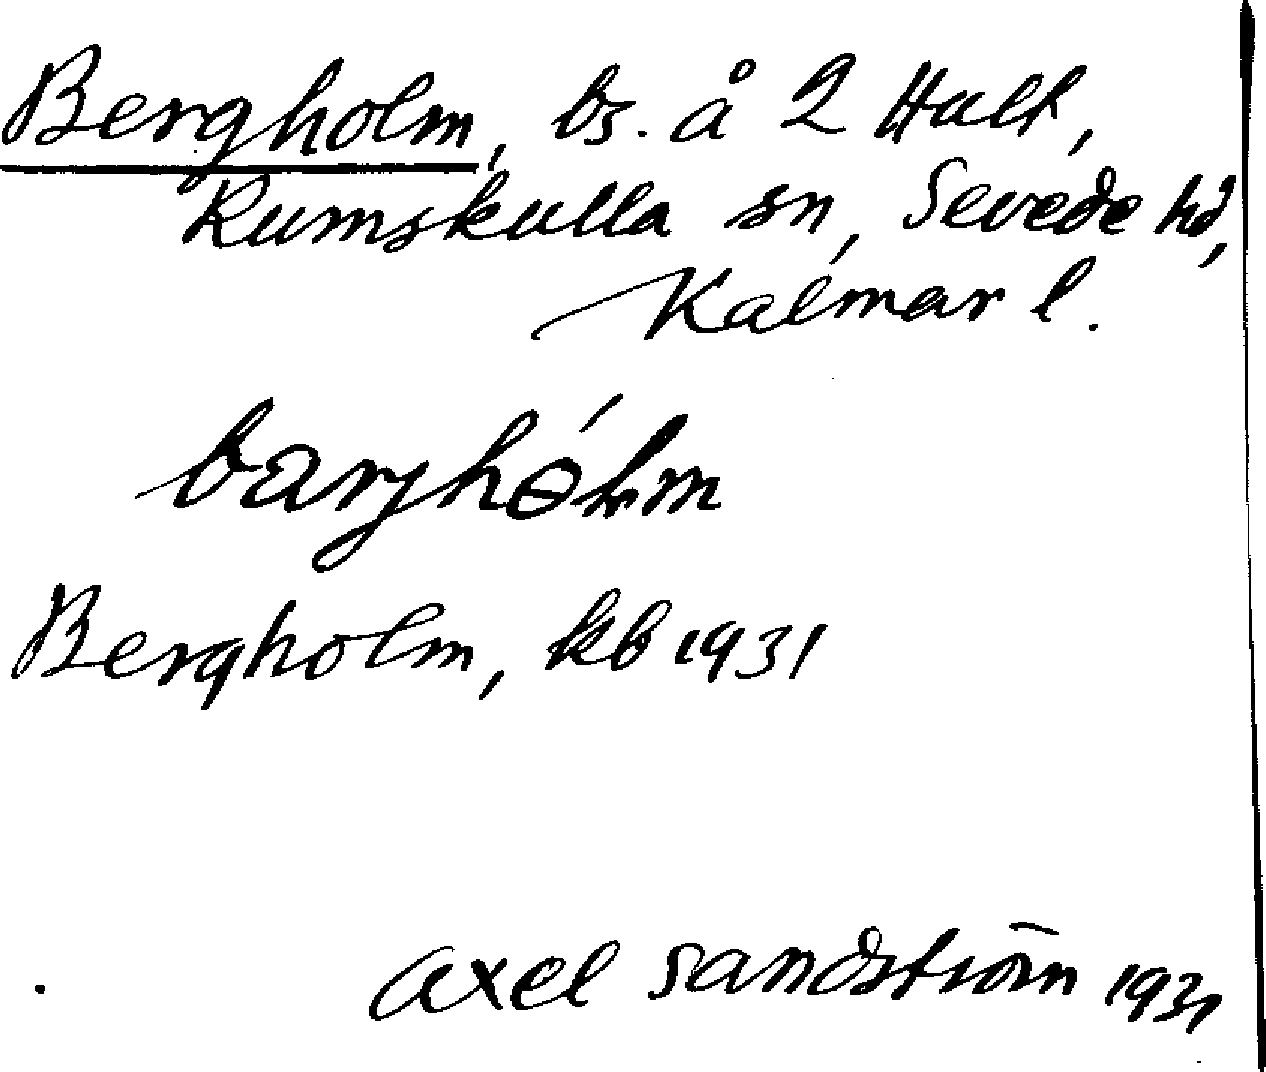 Bergholm, bs. å 2 Hult,
Rumskulla sn, Sevede hd,
Kalmar l.
barjhólm
Bergholm, kb 1931
Axel Sandström 1931